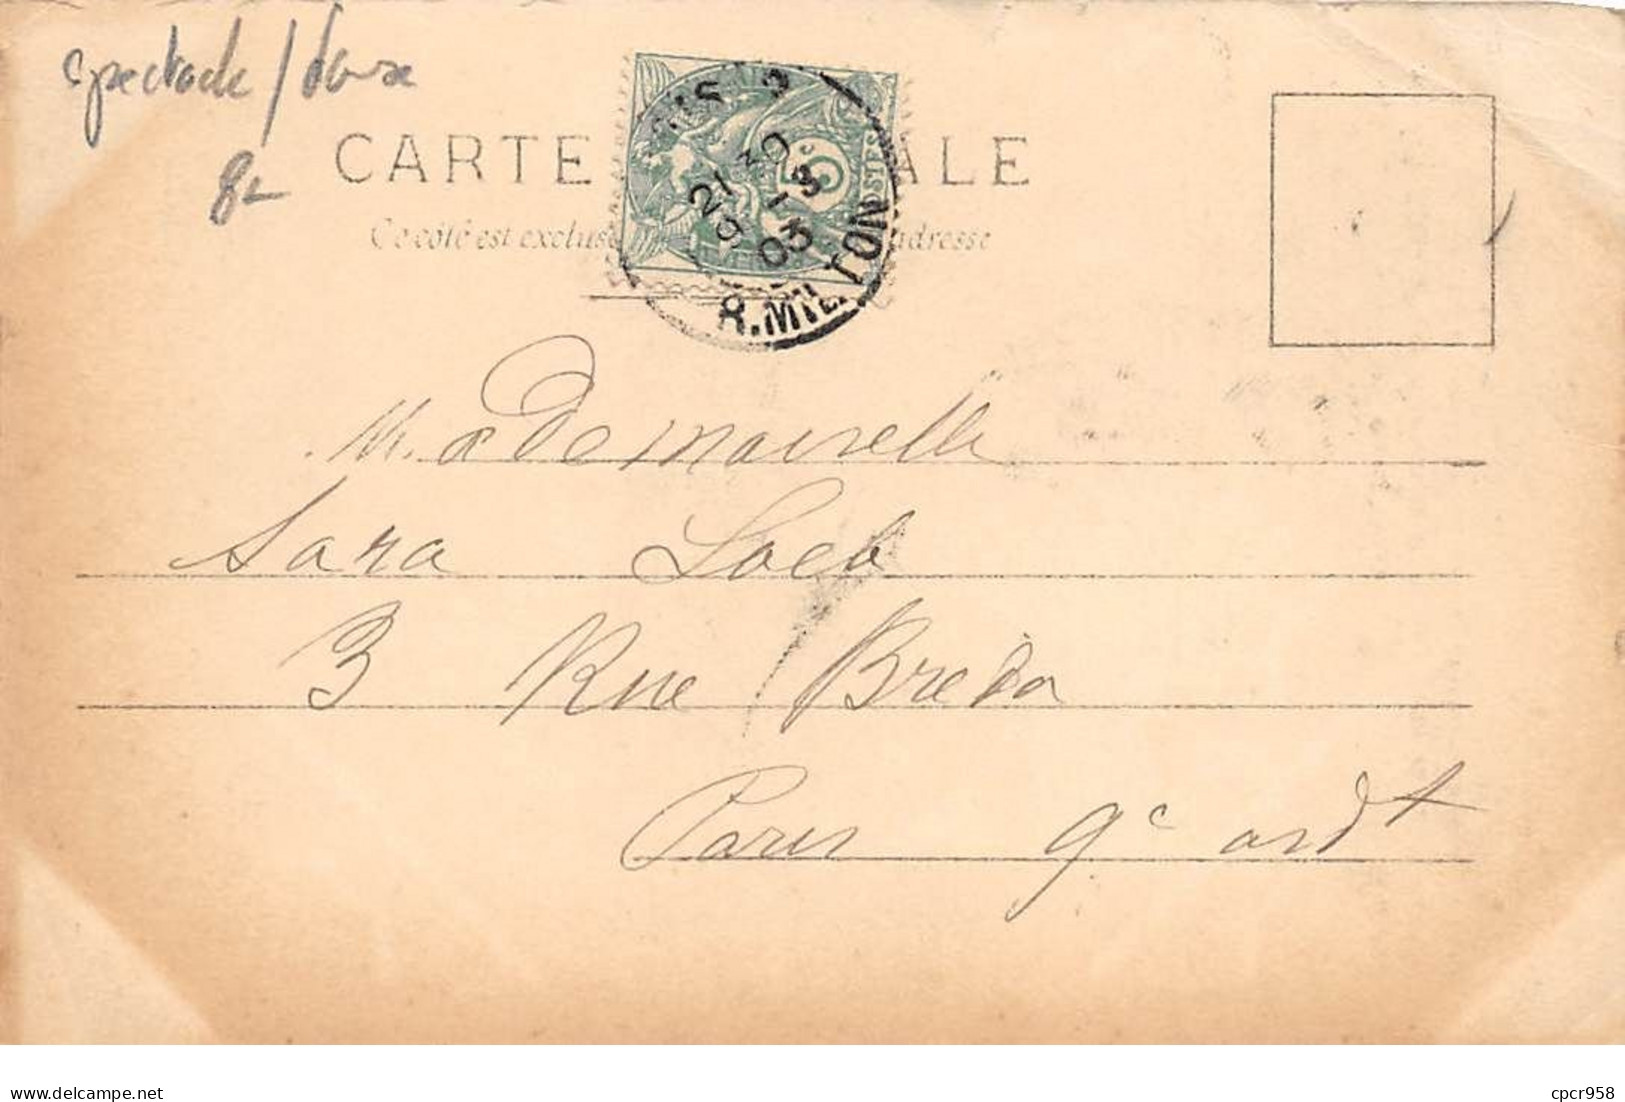 spectacle / danse
8-
CARTE ALE
Ce côté est exclus adresse
5 c
POSTES
PARIS 2
21 30
3
9 03
R. MILTON
Mademoiselle
Sara Loeb
3 Rue Breda
Paris 9e ardt
www.delcampe.net
cpcr958